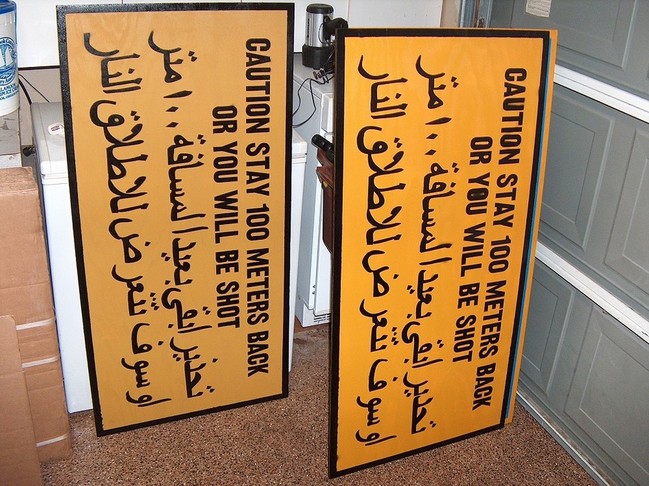 CAUTION STAY 100 METERS BACK
OR YOU WILL BE SHOT
تحذير ابقى بعيد المسافة ١٠٠ متر
او سوف تتعرض للاطلاق النار
CAUTION STAY 100 METERS BACK
OR YOU WILL BE SHOT
تحذير ابقى بعيد المسافة ١٠٠ متر
او سوف تتعرض للاطلاق النار